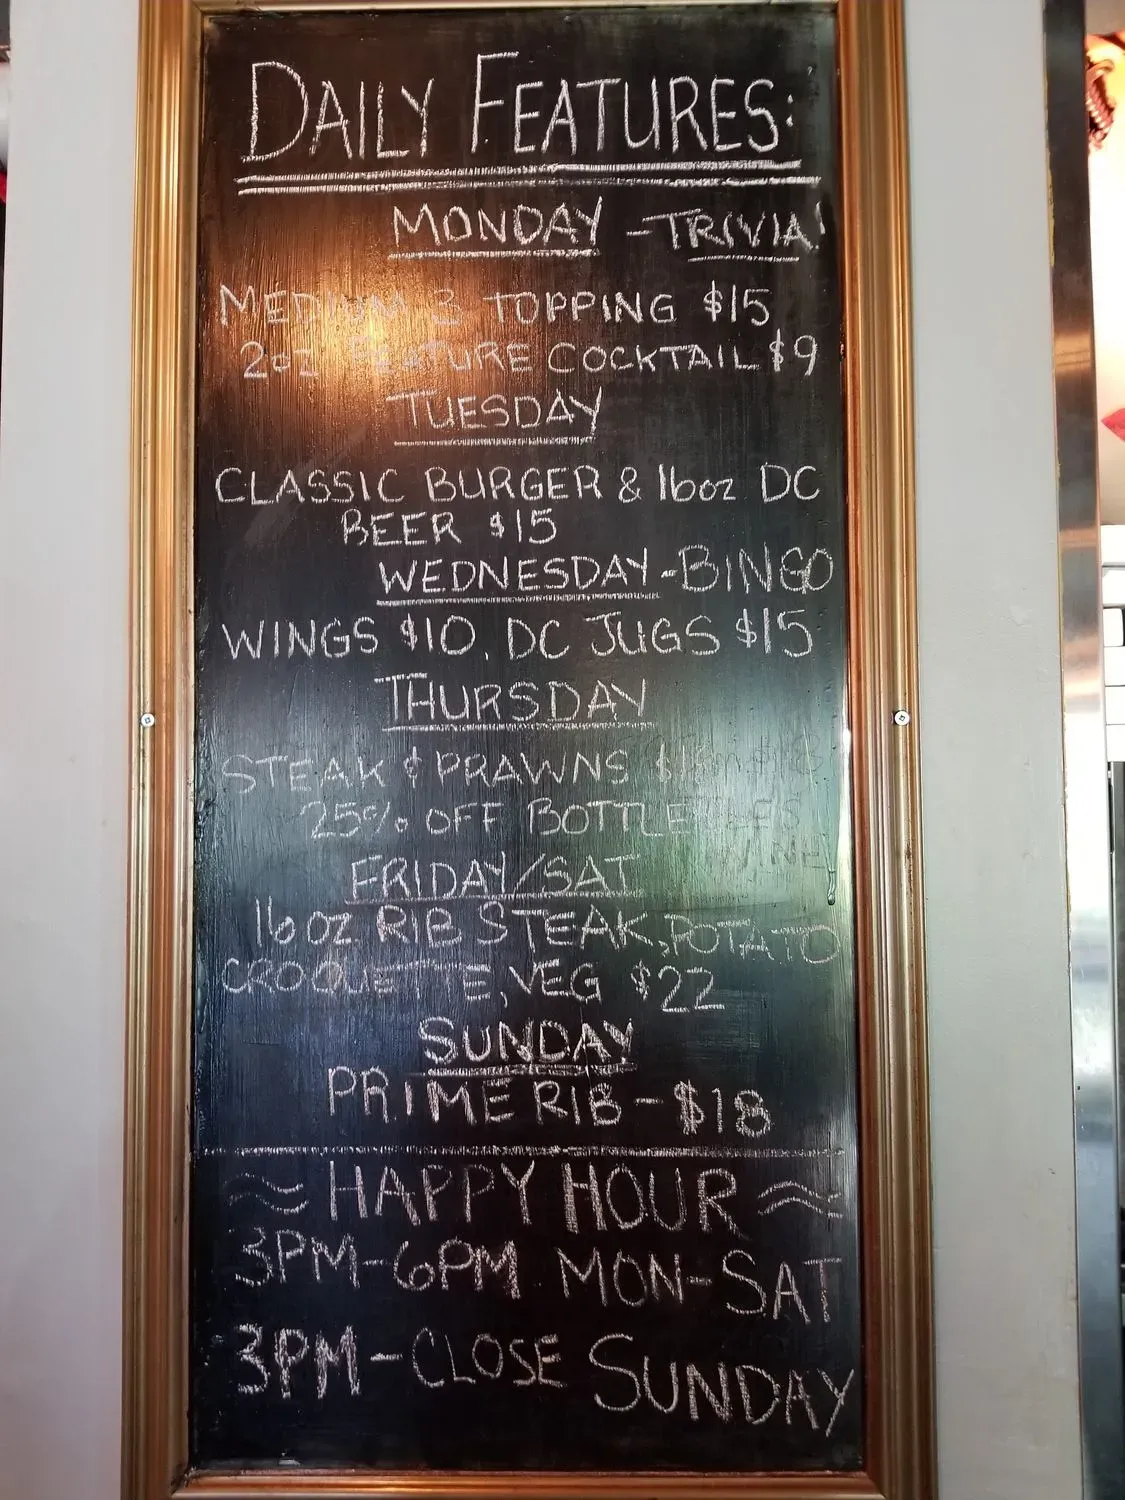 DAILY FEATURES:
MONDAY - TRIVIA!
MEDIUM 3 TOPPING $15
2oz FEATURE COCKTAIL $9
TUESDAY
CLASSIC BURGER & 16oz DC
BEER $15
WEDNESDAY - BINGO
WINGS $10, DC JUGS $15
THURSDAY
STEAK & PRAWNS
25% OFF BOTTLE
WINE
FRIDAY/SAT
16oz RIB STEAK, POTATO
CROQUETTE, VEG $22
SUNDAY
PRIME RIB - $18
≈ HAPPY HOUR ≈
3PM-6PM MON-SAT
3PM-CLOSE SUNDAY